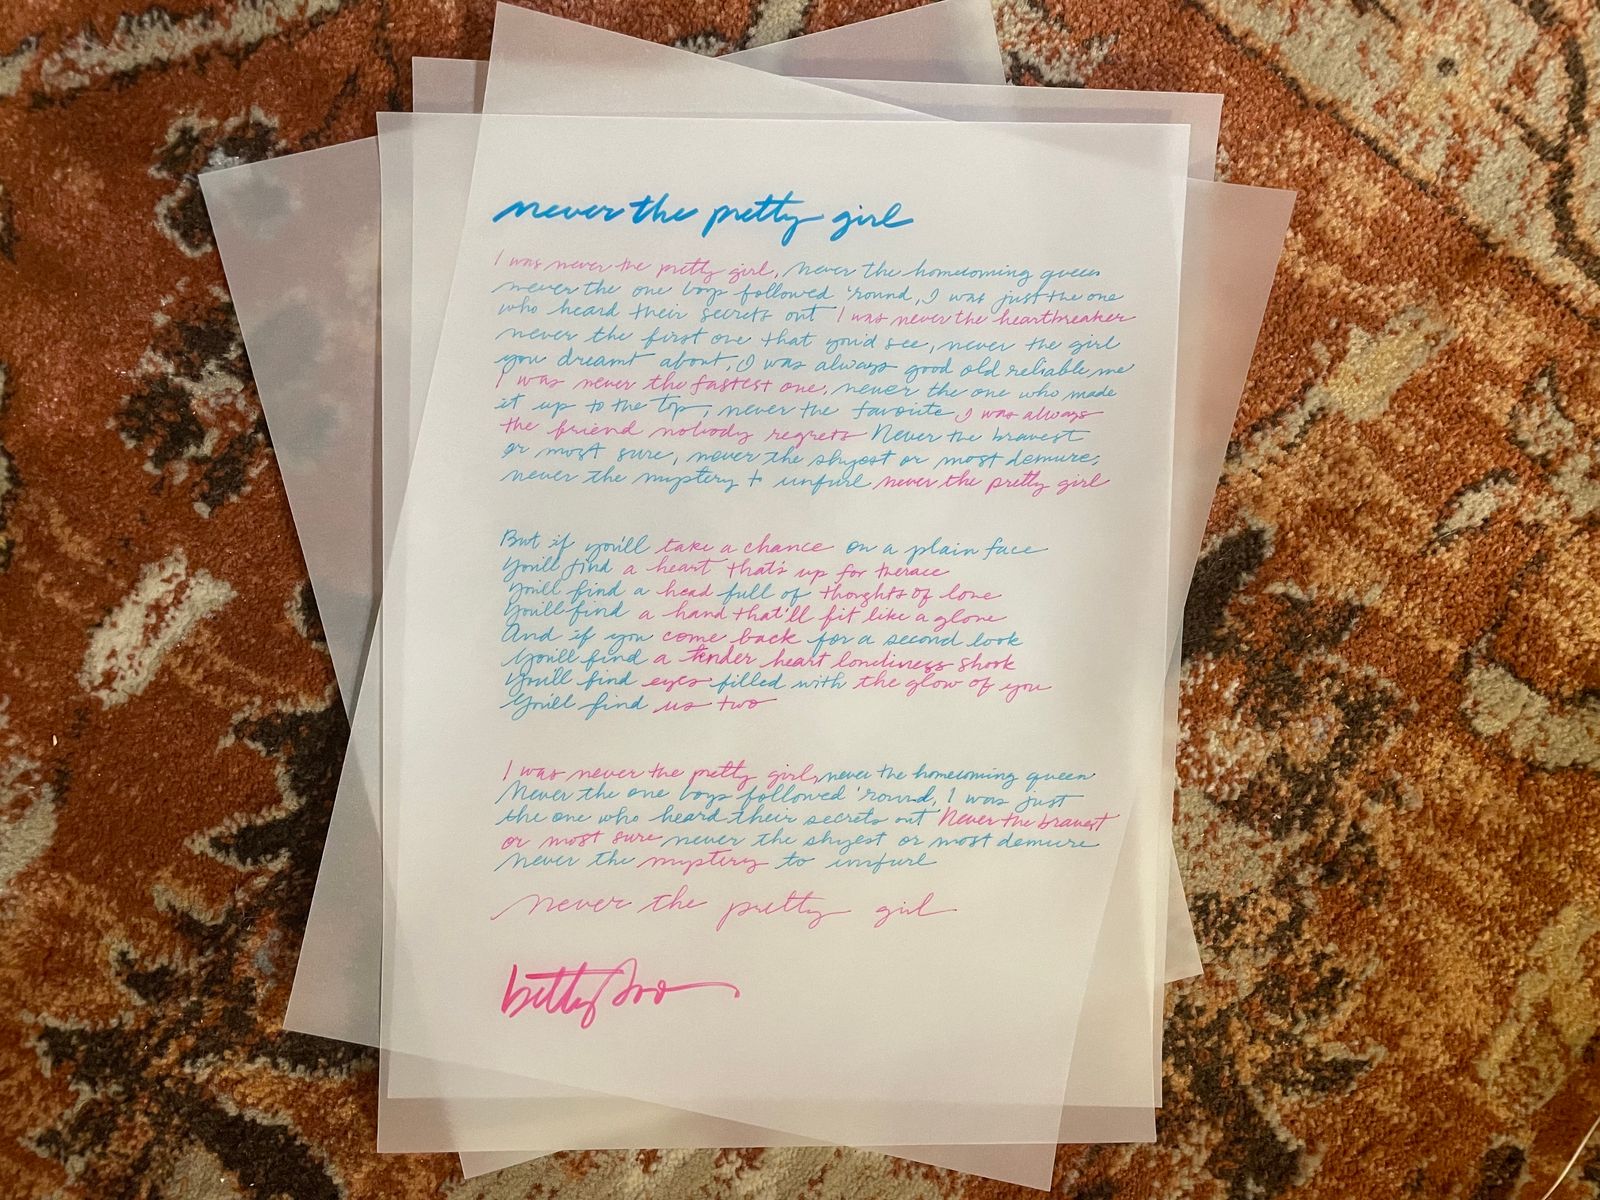 never the pretty girl
I was never the pretty girl, never the homecoming queen
never the one boys followed 'round, I was just the one
who heard their secrets out I was never the heartbreaker
never the first one that you'd see, never the girl
you dreamt about, I was always good old reliable me
I was never the fastest one, never the one who made
it up to the top, never the favorite I was always
the friend nobody regrets Never the bravest
or most sure, never the shyest or most demure,
never the mystery to unfurl never the pretty girl
But if you'll take a chance on a plain face
You'll find a heart that's up for therace
You'll find a head full of thoghts of love
You'll find a hand that'll fit like a glove
And if you come back for a second look
You'll find a tender heart loneliness shook
You'll find eyes filled with the glow of you
You'll find us two
I was never the pretty girl, never the homecoming queen
Never the one boys followed 'round, I was just
the one who heard their secrets out Never the bravest
or most sure never the shyest or most demure
never the mystery to unfurl
never the pretty girl
betty soo